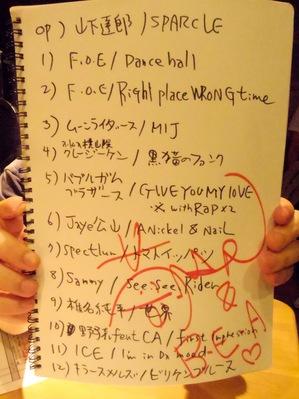 OP) 山下達郎 / SPARCLE
1) F.O.E / Dance hall
2) F.O.E / Right place WRONG time
3) ムーンライダース / MIJ
4) クレージーケン / 黒猫のファンク
5) バブルガム
ブラザーズ / GIVE YOU MY LOVE
※ with RAP x2
6) Jaye公山 / A Nickel & Nail
7) Spectrum / トマトイッパツ
8) Sammy / See See Rider
9) 椎名純平 / 世界
10) 野宮 feat CA / first impression
11) ICE / I'm in Da mood
12) キラースメルズ / ビリケンブルース